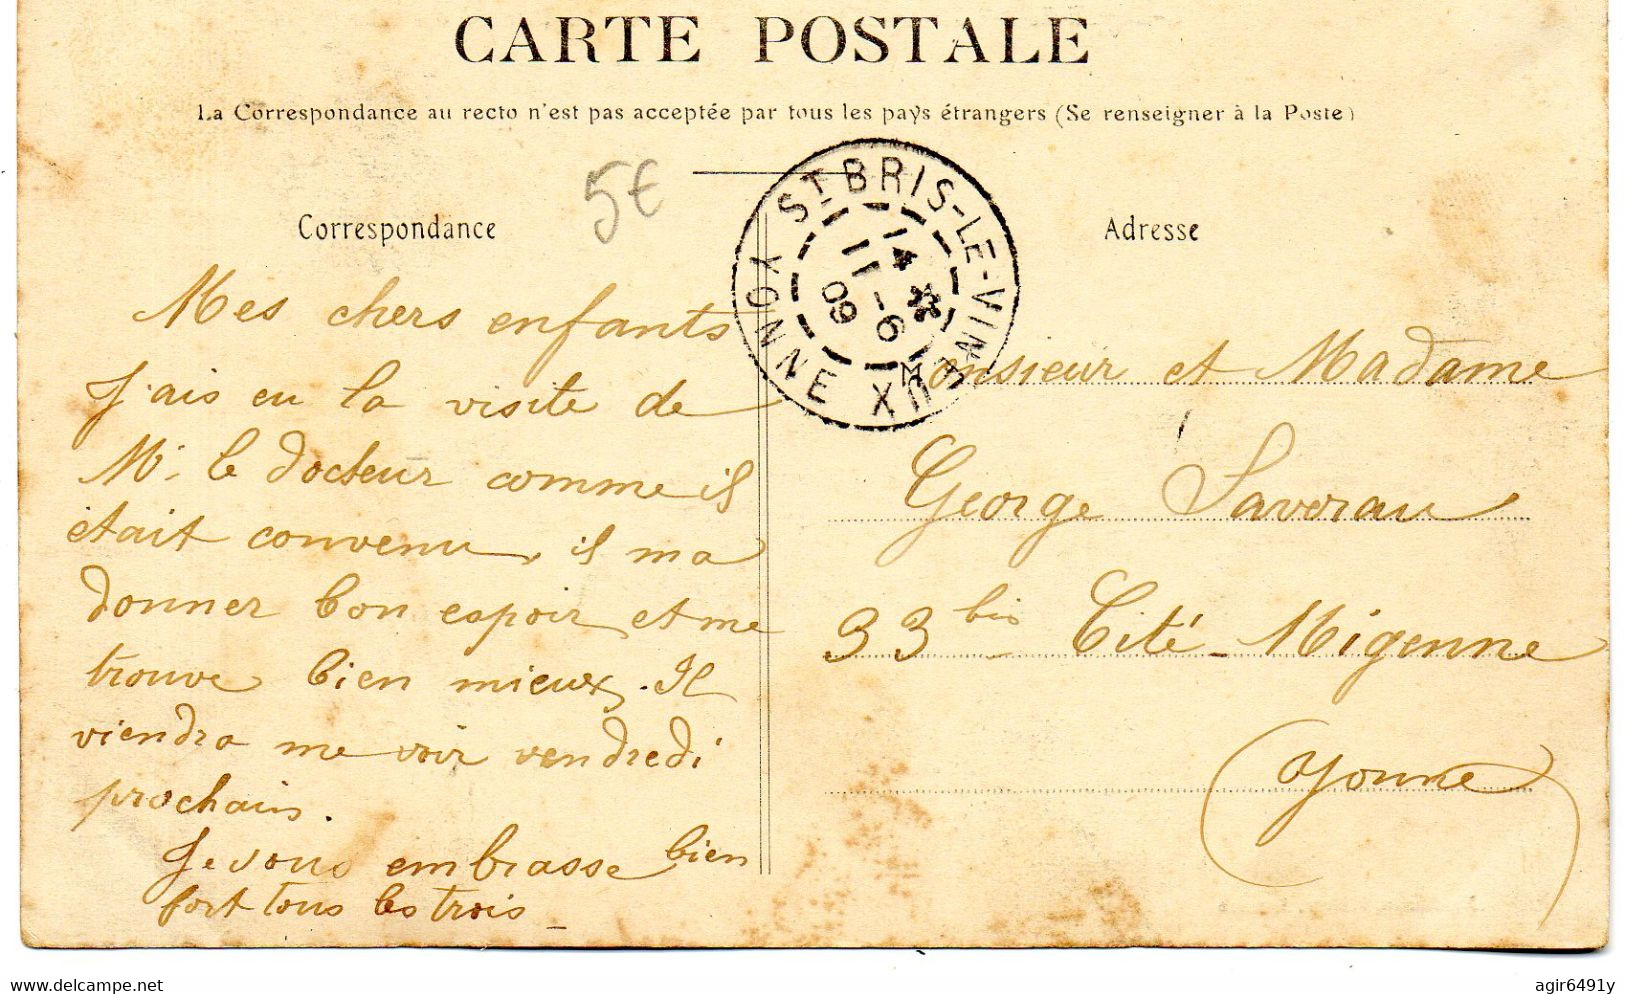 CARTE POSTALE
La Correspondance au recto n'est pas acceptée par tous les pays étrangers (Se renseigner à la Poste)
5€
Correspondance
Adresse
ST BRIS-LE-VINEUX
YONNE
14 *
11 - 6
09
Mes chers enfants
J'ais eu la visite de
M. le docteur comme il
était convenu, il ma
donner bon espoir et me
trouve bien mieux. Il
viendra me voir vendredi
prochain.
Je vous embrasse bien
fort tous les trois
Monsieur et Madame
George Savorau
33 bis Cité - Migenne
Yonne
www.delcampe.net
agir6491y